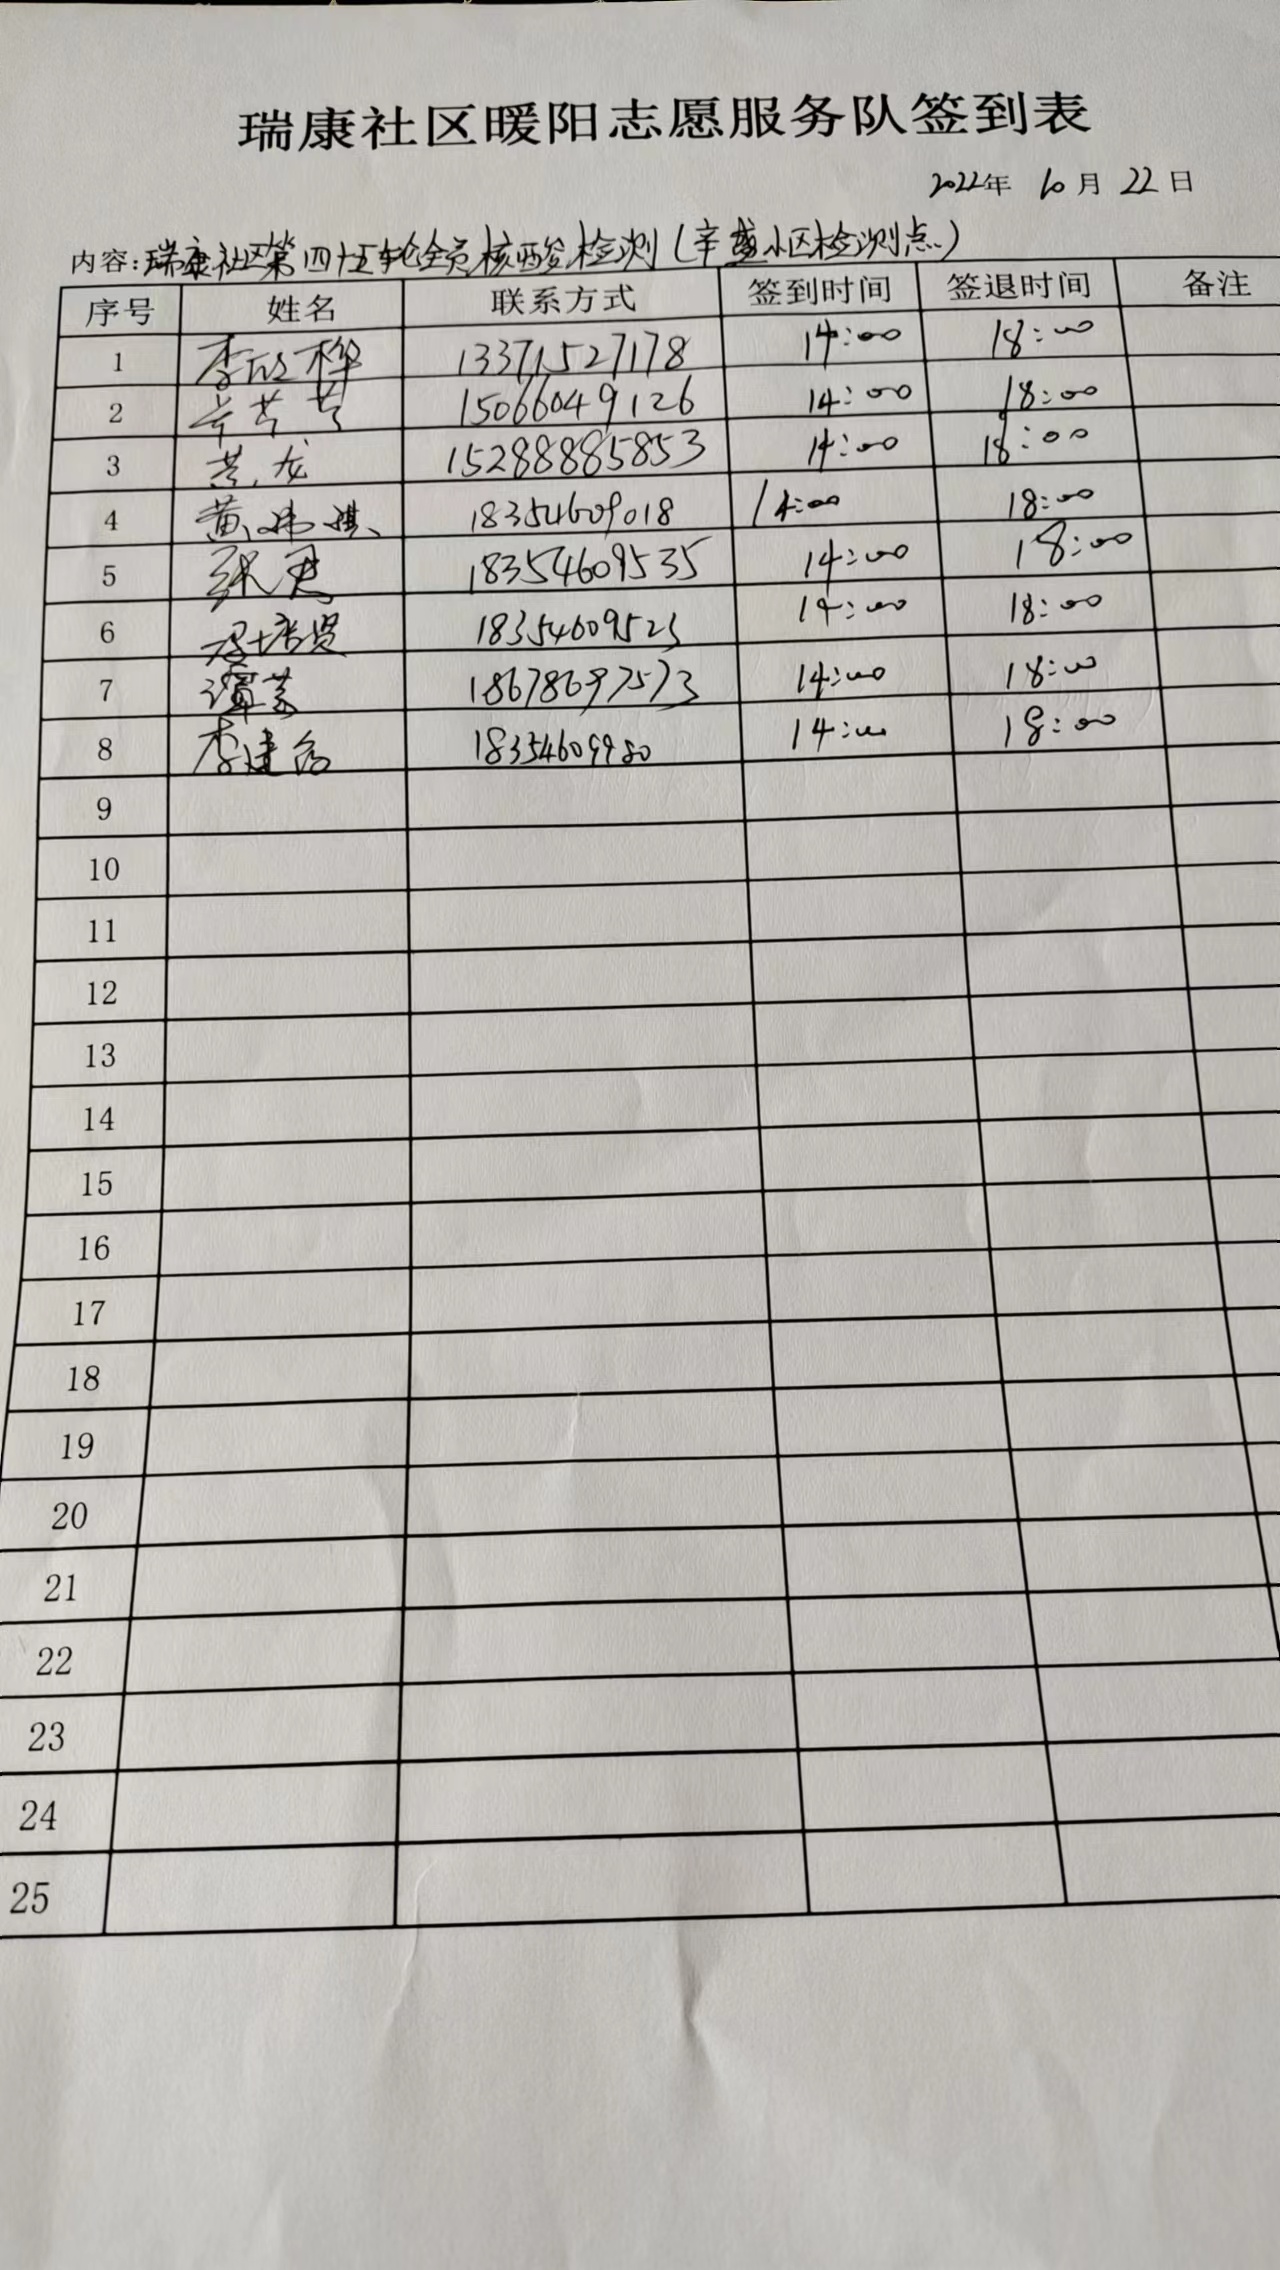 瑞康社区暖阳志愿服务队签到表
2022年 10月 22日
内容:瑞康社区第四十五轮全员核酸检测(辛盛小区检测点)
序号 姓名 联系方式 签到时间 签退时间 备注
1 李欣桦 13371527178 14:00 18:00
2 15066049126 14:00 18:00
3 龙 15288885853 14:00 18:00
4 黄 18354609018 14:00 18:00
5 张 18354609535 14:00 18:00
6 培贤 18354609523 14:00 18:00
7 谭芳 18678697573 14:00 18:00
8 李建 18354609980 14:00 18:00
9
10
11
12
13
14
15
16
17
18
19
20
21
22
23
24
25